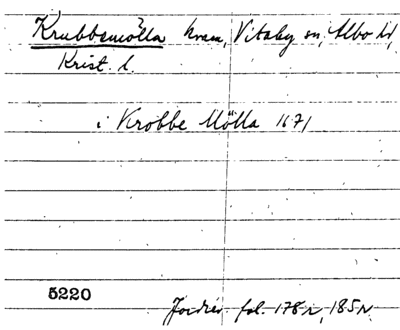 Krubbemölla kvarn, Vitaby sn, Albo hd,
Krist. l.
i Krobbe Mölla 1671
5220
Jordrev. fol. 178r, 185r